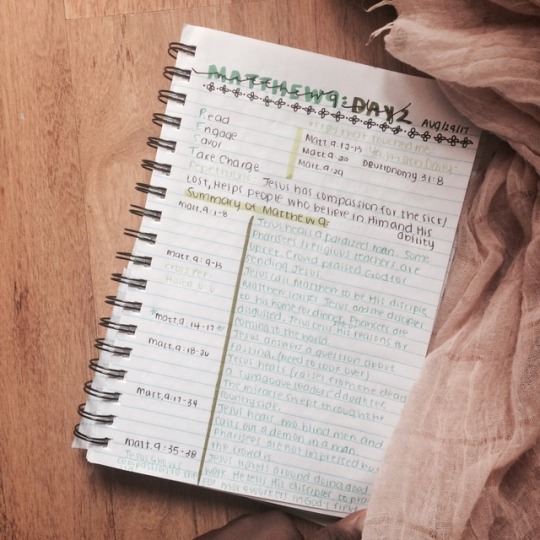 MATTHEW 9: DAY 2
AUG/29/17
Read
Engage
Savor
Take Charge
Matt. 9:12-13
Matt. 9:20
Matt. 9:29
Deutionomy 31:8
Jesus has compassion for the sick/
Lost, Helps people who believe in Him and His
ability
Summary of Matthew 9:
Matt. 9:1-8
Jesus heals a paralized man. Some
pharisees/religious teachers are
upset. Crowd praised God for
sending Jesus.
Matt. 9:9-13
Jesus calls Matthew to be His disciple.
to his home for dinner. Pharisees are
disgusted. Jesus tells his reasons for
coming to the world.
*Matt. 9:14-17*
Jesus answers a question about
fasting.
Matt. 9:18-26
Jesus heals (raises from the dead)
a synagogue leaders' daughter.
The miracle swept through the
countryside.
Matt. 9:27-34
Jesus heals two blind men and
casts out a demon in a man.
Pharisees are not impressed but
the crowd is.
Matt. 9:35-38
Jesus travels around doing good
work. He tells His disciples to pray